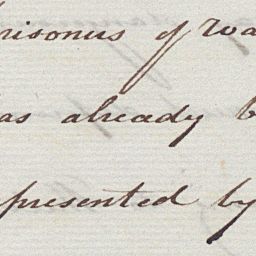 risoners of wa
as already b
presented by